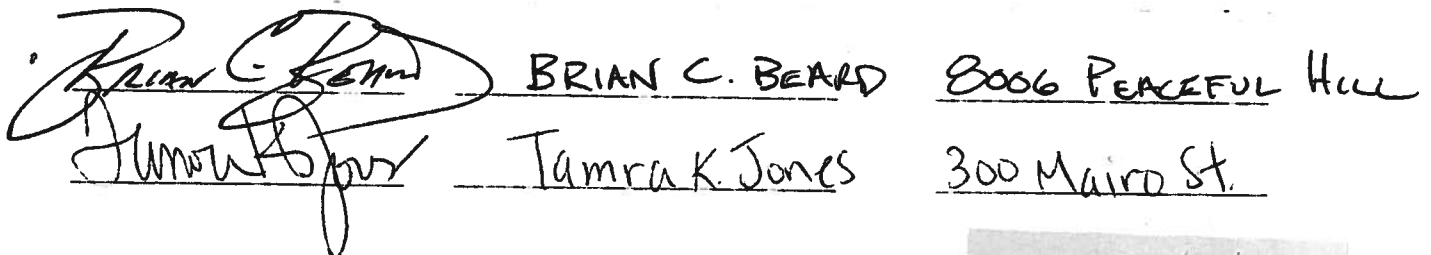 Brian C. Beard BRIAN C. BEARD 8006 PEACEFUL HILL
Tamra K Jones Tamra K. Jones 300 Mairo St.